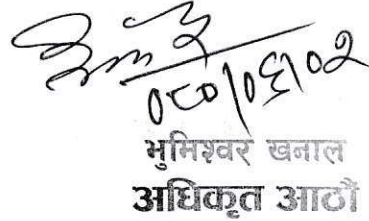 ०८०/०६/०२
भुमिश्वर खनाल
अधिकृत आठौं